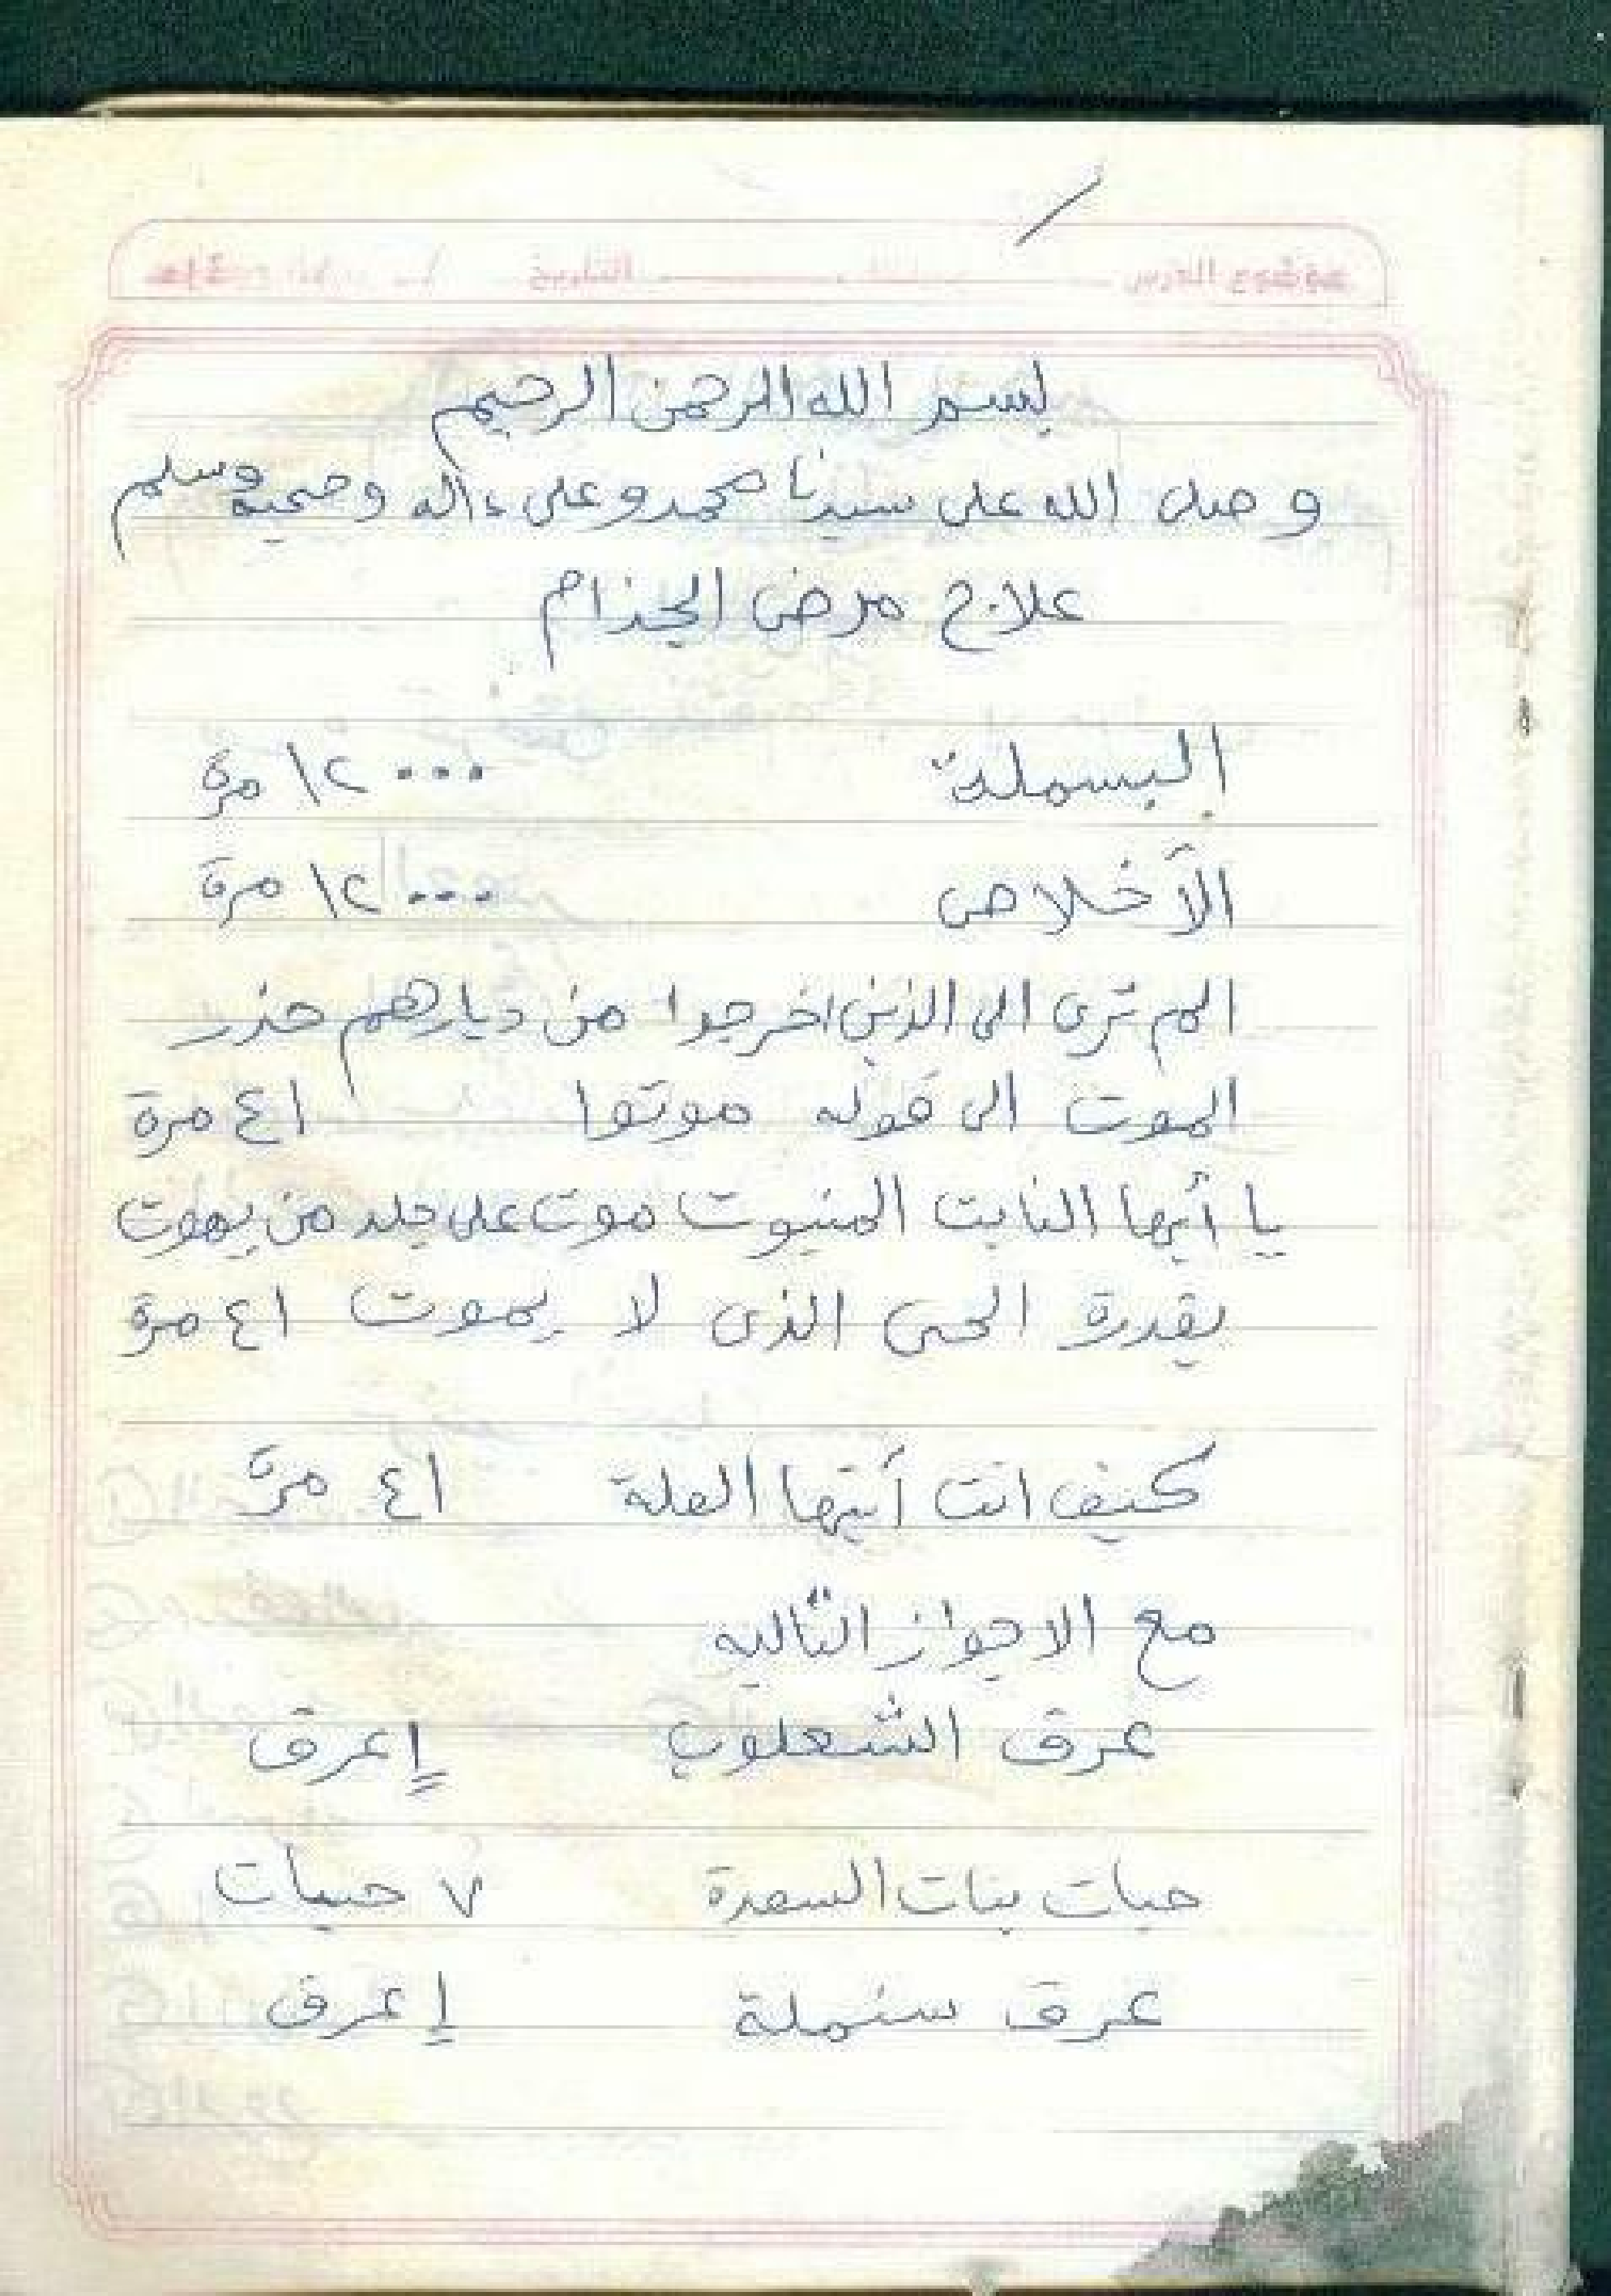 بسم الله الرحمن الرحيم
وصل الله على سيدنا محمد وعلى ءاله وصحبه وسلم
علاج مرض الجذام
البسملة ١٢٠٠٠ مرة
الأخلاص ١٢٠٠٠ مرة
الم ترى الى الذين اخرجوا من ديارهم حذر
الموت الى قوله موتوا ٤١ مرة
يا أيها النابت المنبوت موت على جلد من يموت
بقدرة الحى الذى لا يموت ٤١ مرة
كيف انت أيتها العلة ٤١ مرة
مع الاجواز التاليه
عرق الشعلوب ١ عرق
حبات بنات السعدة ٧ حبات
عرق سنملة ١ عرق